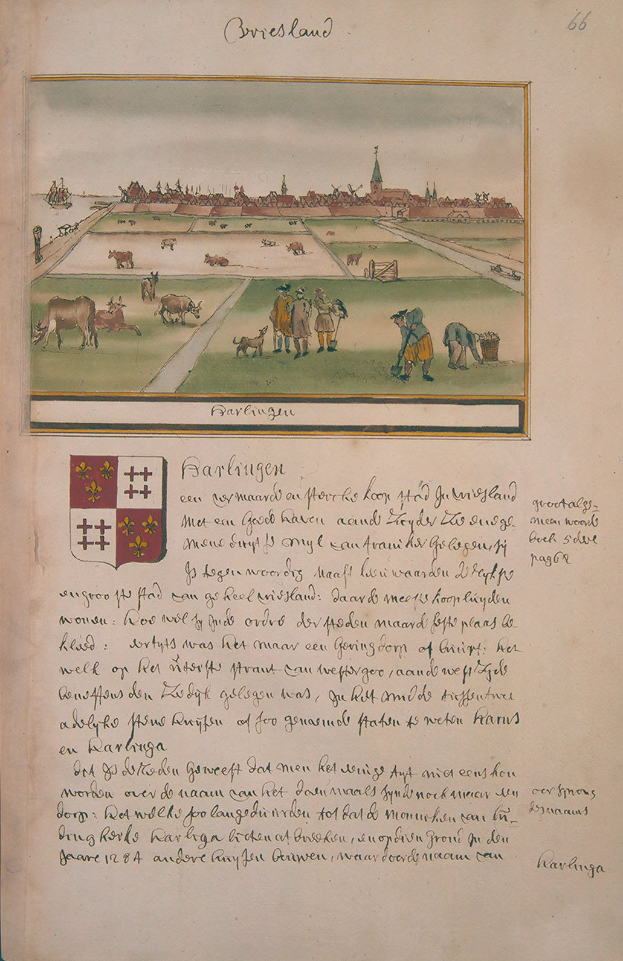 Vriesland
66
Harlingen
Harlingen
een vermaarde en stercke koop stad In vriesland
Met een goede haven aande Zuyder Zee en ge
mene duytse myl van franiker gelegen, sy
Is tegenwoordig naast leeuwaarden de rykste
en grooste stad van geheel vriesland: daar de meeste koopluyden
wonen: hoe wel sy Inde ordre der steden maar de seste plaas be
kleed: eertyts was het maar een gering dorp of buurt: het
welk op het uiterste strant van westergoo, aande west Zyde
beneffens den Zeedyk gelegen was, In het midde tussen twe
adelyke stene huysen of soo genaemde staten te weten Harns
en Harlinga
dit Is de Reden geweest dat men het enige tyt niet eens kon
worden over de naam van het doenmaals synde noch maar een
dorp: het welke soo lange duurden tot dat de monniken van
Harliga lieten af breeken, en op dien grond In den
Jaare 1284 andere huysen bouwen, waar door de naam van
groot alge-
meen woorde
boek 5 deel
pag 68
oorsprong
des naams
Harlinga